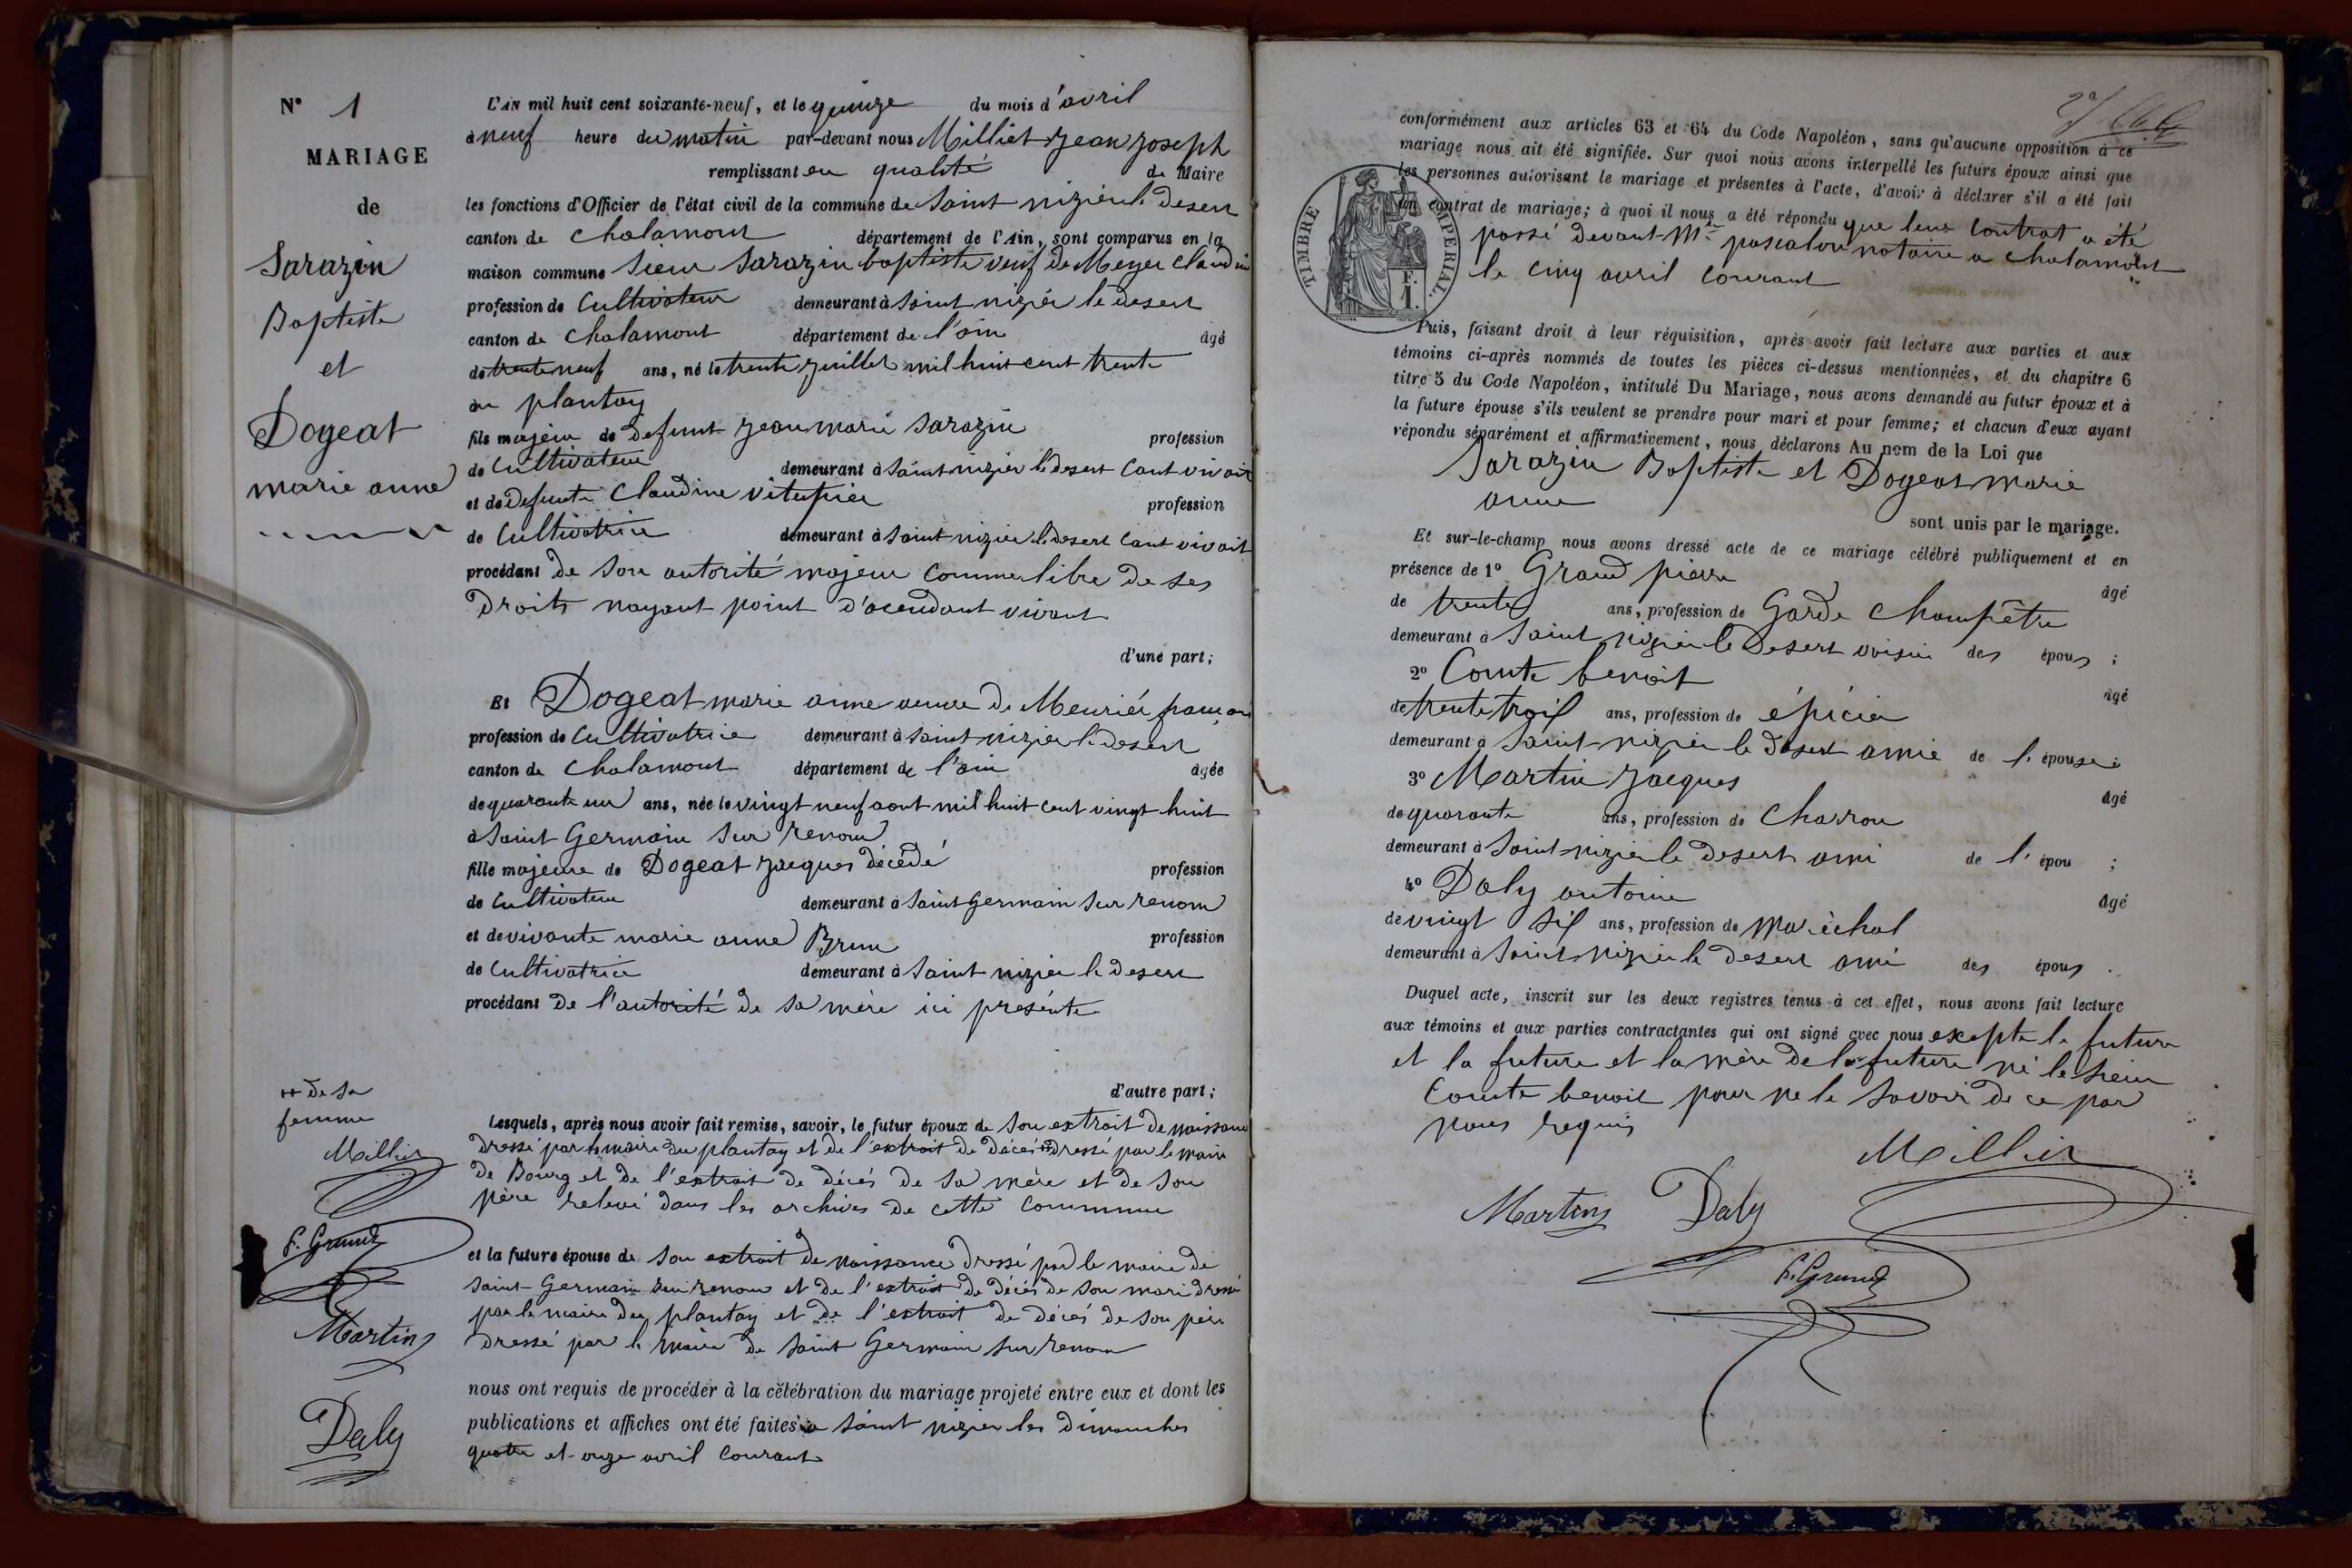 N° 1
MARIAGE
de
Sarazin
Baptiste
et
Dogeat
marie anne
L'AN mil huit cent soixante-neuf, et le quinze du mois d'avril
à neuf heure du matin par-devant nous Milliet Jean Joseph
remplissant en qualité de Maire
les fonctions d'Officier de l'état civil de la commune de Saint nizier le Desert
canton de Chalamont département de l'Ain, sont comparus en la
maison commune Sieur Sarazin baptiste veuf de Meyer Claudin
profession de Cultivateur demeurant à Saint nizier le desert
canton de Chalamont département de l'ain âgé
de trente neuf ans, né le trente Juillet mil huit cent trente
au plantay
fils majeur de Defunt Jean marie Sarazin profession
de Cultivateur demeurant à Saint nizier le desert Cant vivait
et de Defunte Claudine profession
de Cultivatrice demeurant à Saint nizier le desert Cant vivait
procédant de son autorité majeur comme libre de ses
Droits nayant point d'acendant vivant
d'une part;
Et Dogeat marie anne veuve de Meuriér françois
profession de Cultivatrice demeurant à Saint nizier le desert
canton de Chalamont département de l'ain âgée
de quarante un ans, née le vingt neuf aout mil huit cent vingt huit
à Saint Germain Sur renom
fille majeure de Dogeat Jacques décédé profession
de Cultivateur demeurant à Saint Germain Sur renom
et de vivante marie anne Brun profession
de Cultivatrice demeurant à Saint nizier le desert
procédant de l'autorité de sa mère ici presénte
d'autre part;
++ de sa
femme
Milliet
F. Grand
Martin
Daly
Lesquels, après nous avoir fait remise, savoir, le futur époux de son extrait de naissance
dressé par le maire du plantay et de l'extrait de décés ++ dressé par le maire
de Bourg et de l'extrait de décés de sa mère et de son
père relevé dans les archives de cette commune
et la future épouse de son extrait de naissance dressé par le maire de
Saint Germain sur renom et de l'extrait de décés de son mari dressé
par le maire du plantay et de l'extrait de décés de son pére
dressé par le maire de Saint Germain sur renom
nous ont requis de procéder à la célébration du mariage projeté entre eux et dont les
publications et affiches ont été faites a saint nizier les dimanches
quatre et onze avril courant
conformément aux articles 63 et 64 du Code Napoléon, sans qu'aucune opposition à ce
mariage nous ait été signifiée. Sur quoi nous avons interpellé les futurs époux ainsi que
les personnes autorisant le mariage et présentes à l'acte, d'avoir à déclarer s'il a été fait
un contrat de mariage; à quoi il nous a été répondu que leur Contrat a été
passé devant Me pascalon notaire a Chalamont
le cinq avril courant
TIMBRE IMPERIAL.
F.
1.
Puis, faisant droit à leur réquisition, après avoir fait lecture aux parties et aux
témoins ci-après nommés de toutes les pièces ci-dessus mentionnées, et du chapitre 6
titre 5 du Code Napoléon, intitulé Du Mariage, nous avons demandé au futur époux et à
la future épouse s'ils veulent se prendre pour mari et pour femme; et chacun d'eux ayant
répondu séparément et affirmativement, nous déclarons Au nom de la Loi que
Sarazin Baptiste et Dogeat marie
anne
sont unis par le mariage.
Et sur-le-champ nous avons dressé acte de ce mariage célébré publiquement et en
présence de 1° Grand pierre âgé
de trente ans, profession de Garde Champêtre
demeurant à Saint nizier le Desert voisin des époux ;
2° Comte benoit âgé
de trente trois ans, profession de épicier
demeurant à Saint nizier le desert amie de l'épouse ;
3° Martin Jacques âgé
de quarante ans, profession de Charron
demeurant à Saint nizier le desert ami de l'épou ;
4° Daly antoine âgé
de vingt six ans, profession de maréchal
demeurant à Saint nizier le desert ami des époux .
Duquel acte, inscrit sur les deux registres tenus à cet effet, nous avons fait lecture
aux témoins et aux parties contractantes qui ont signé avec nous excepte le future
et la future et la mère de la future ni le sieur
Comte benoit pour ne le savoir de ce par
nous requis
Milliet
Martin Daly
F. Grand